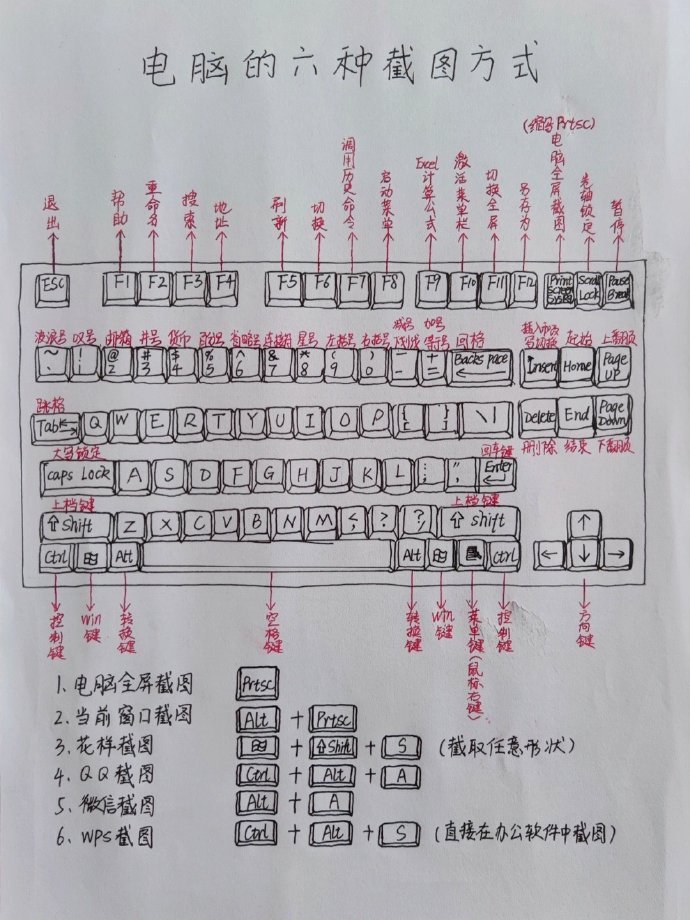 电脑的六种截图方式
(缩写Prtsc)
退出 帮助 重命名 搜索 地址 刷新 切换 调用历史命令 启动菜单 Excel计算公式 激活菜单栏 切换全屏 另存为 电脑全屏截图 卷轴锁定 暂停
ESC F1 F2 F3 F4 F5 F6 F7 F8 F9 F10 F11 F12 Print Screen SysRq Scroll Lock Pause Break
波浪号 叹号 邮箱 井号 货币 百分号 省略号 连接符 星号 左括号 右括号 减号下划线 加号等号 回格 起始 上翻页
~ ` ! 1 @ 2 # 3 $ 4 % 5 ^ 6 & 7 * 8 ( 9 ) 0 _ - + = Backspace Insert Home Page UP
跳格
Tab Q W E R T Y U I O P { [ } ] \ | Delete End Page Down
大写锁定 回车键 删除 结束 下翻页
caps Lock A S D F G H J K L : ; " , Enter
上档键 上档键
⇧Shift Z X C V B N M < , ? ? ⇧shift ↑
Ctrl 田 Alt Alt 田 Ctrl ← ↓ →
控制键 Win键 转换键 空格键 转换键 Win键 菜单键(鼠标右键) 控制键 方向键
1.电脑全屏截图 Prtsc
2.当前窗口截图 Alt + Prtsc
3.花样截图 田 + ⇧Shift + S (截取任意形状)
4.QQ截图 Ctrl + Alt + A
5.微信截图 Alt + A
6.WPS截图 Ctrl + Alt + S (直接在办公软件中截图)